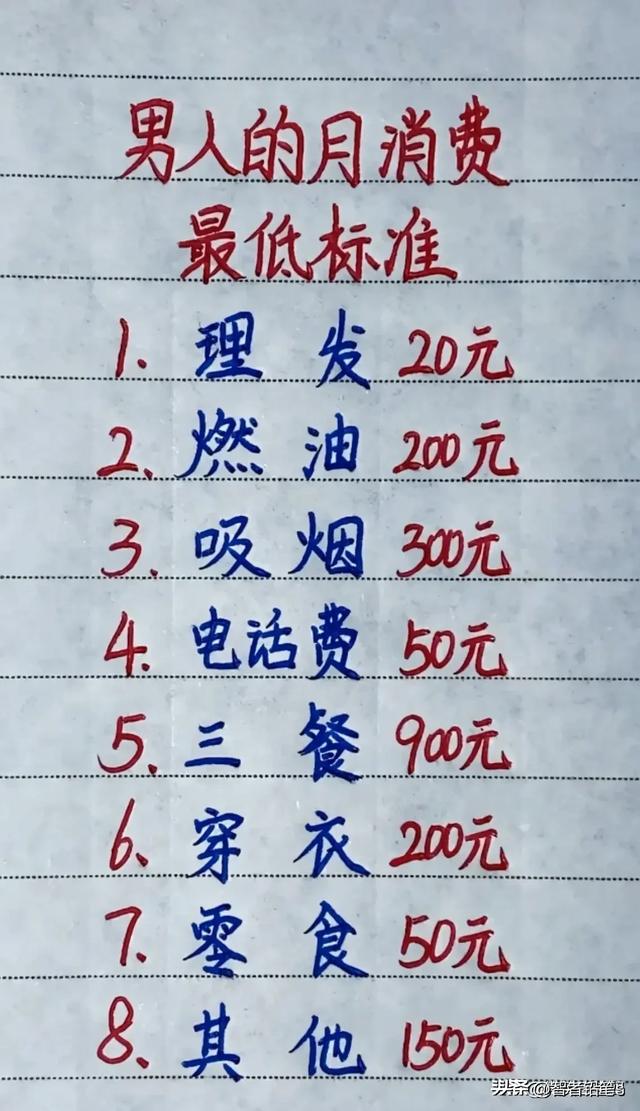 男人的月消费
最低标准
1. 理发 20元
2、燃油 200元
3. 吸烟 300元
4. 电话费 50元
5、三餐 900元
6、穿衣 200元
7. 零食 50元
8、其他 150元
头条 @智者铅笔